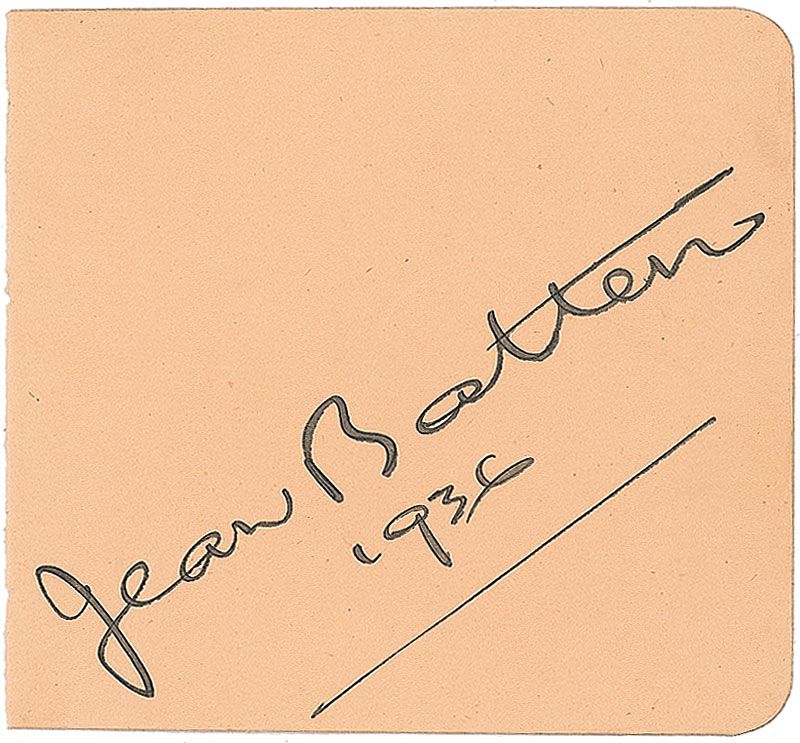 Jean Batten
1936